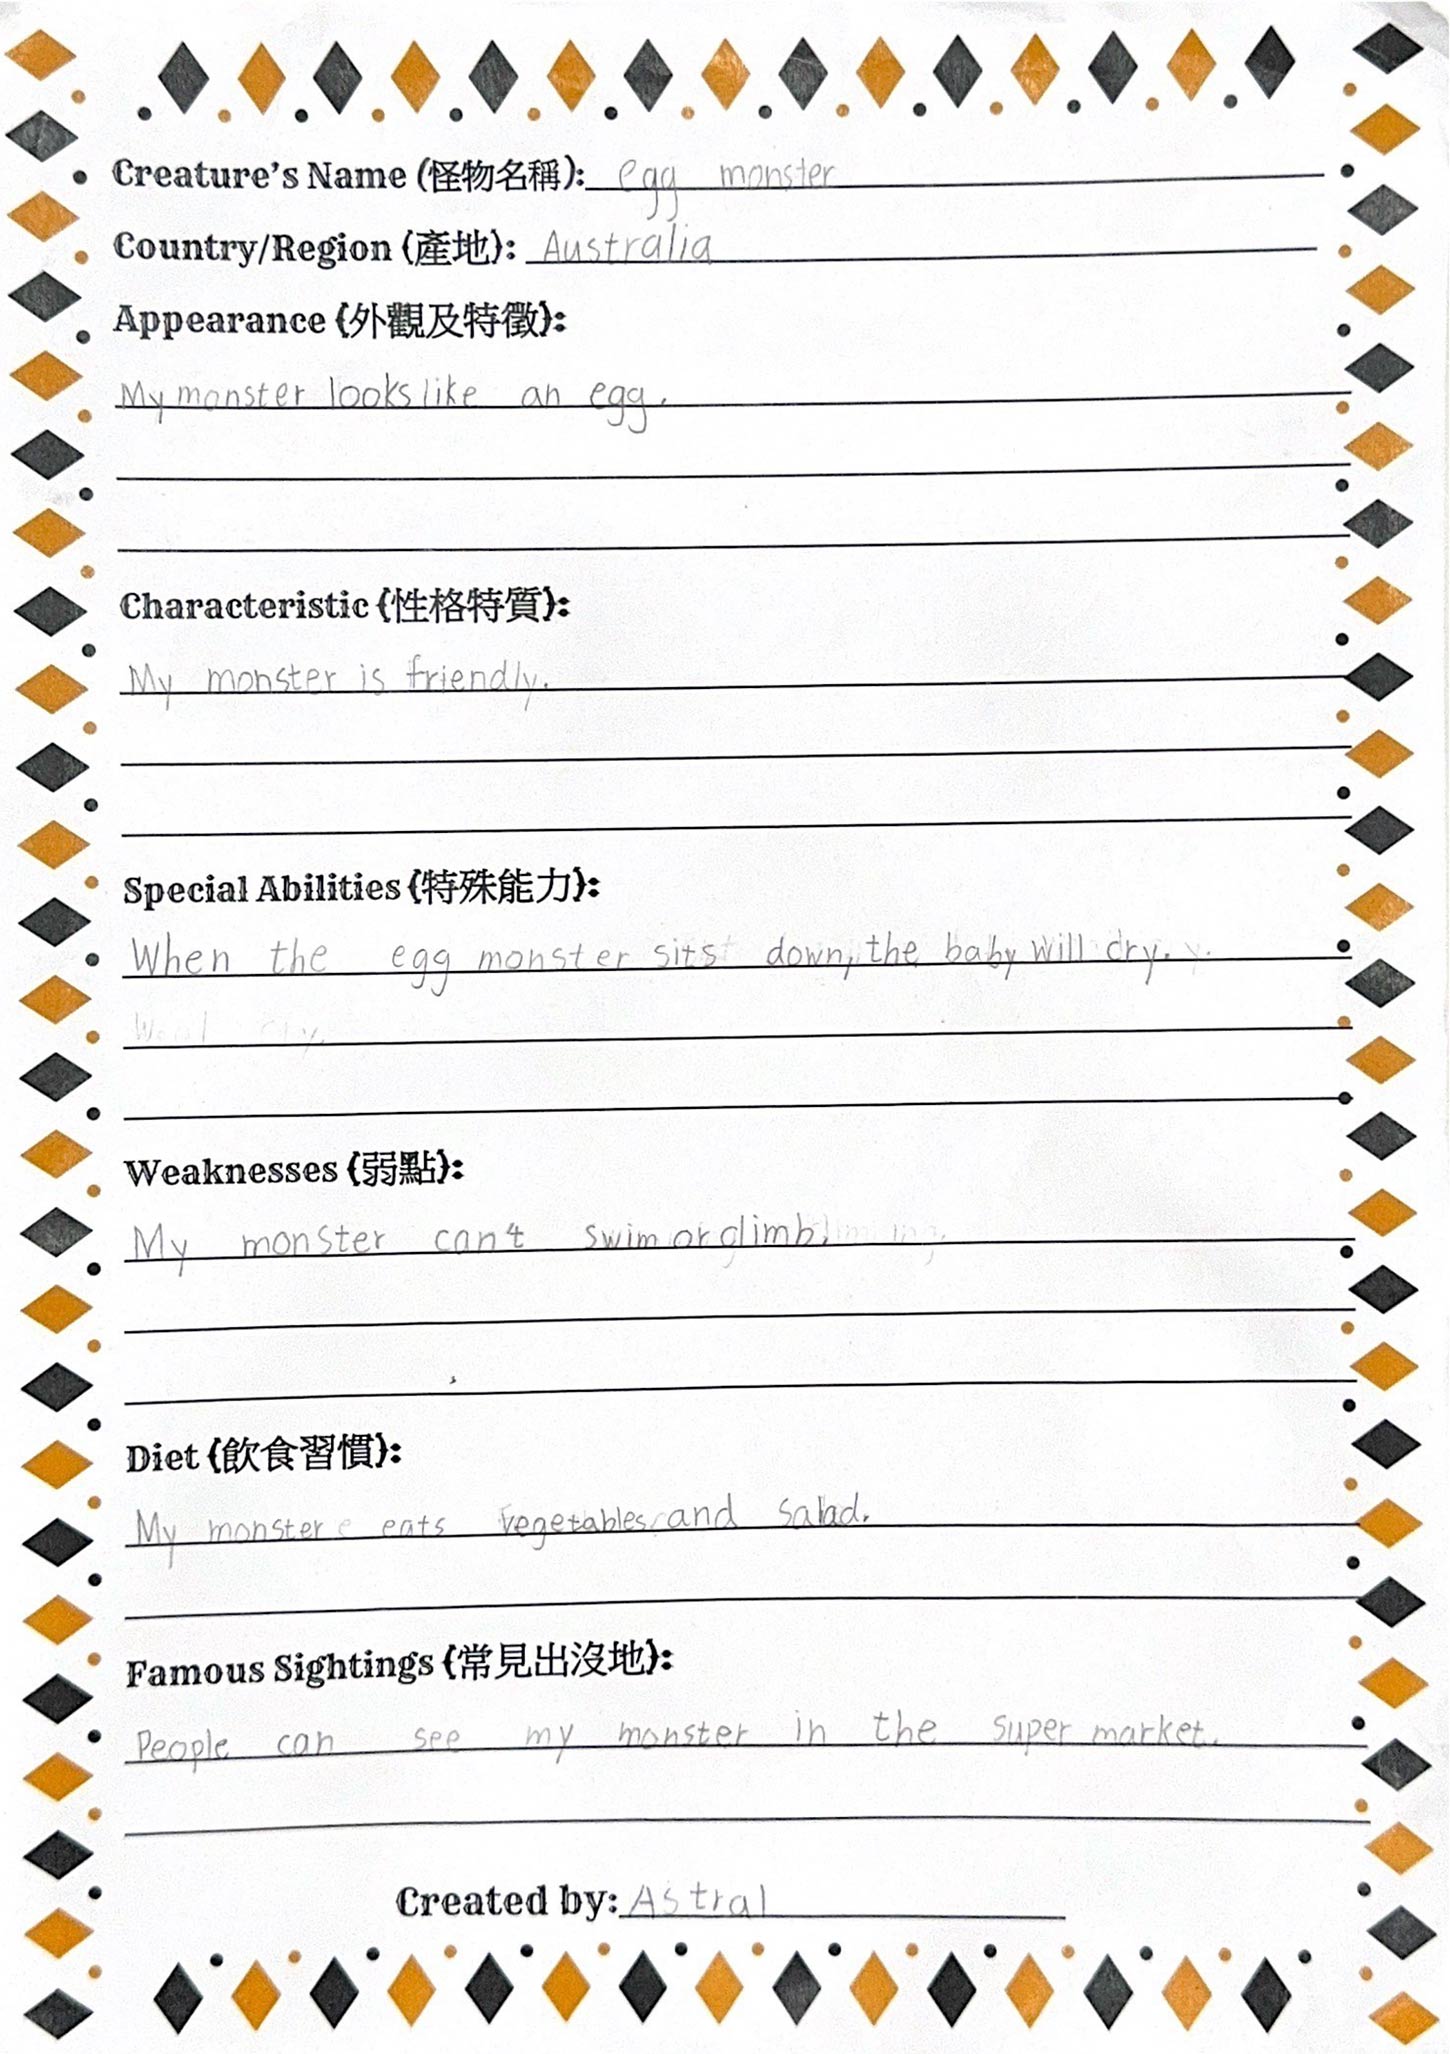 Creature's Name (怪物名稱): egg monster
Country/Region (產地): Australia
Appearance (外觀及特徵):
My monster looks like an egg.
Characteristic (性格特質):
My monster is friendly.
Special Abilities (特殊能力):
When the egg monster sits down, the baby will cry.
Weaknesses (弱點):
My monster can't swim or climb.
Diet (飲食習慣):
My monster eats vegetables and salad.
Famous Sightings (常見出沒地):
People can see my monster in the super market.
Created by: Astral